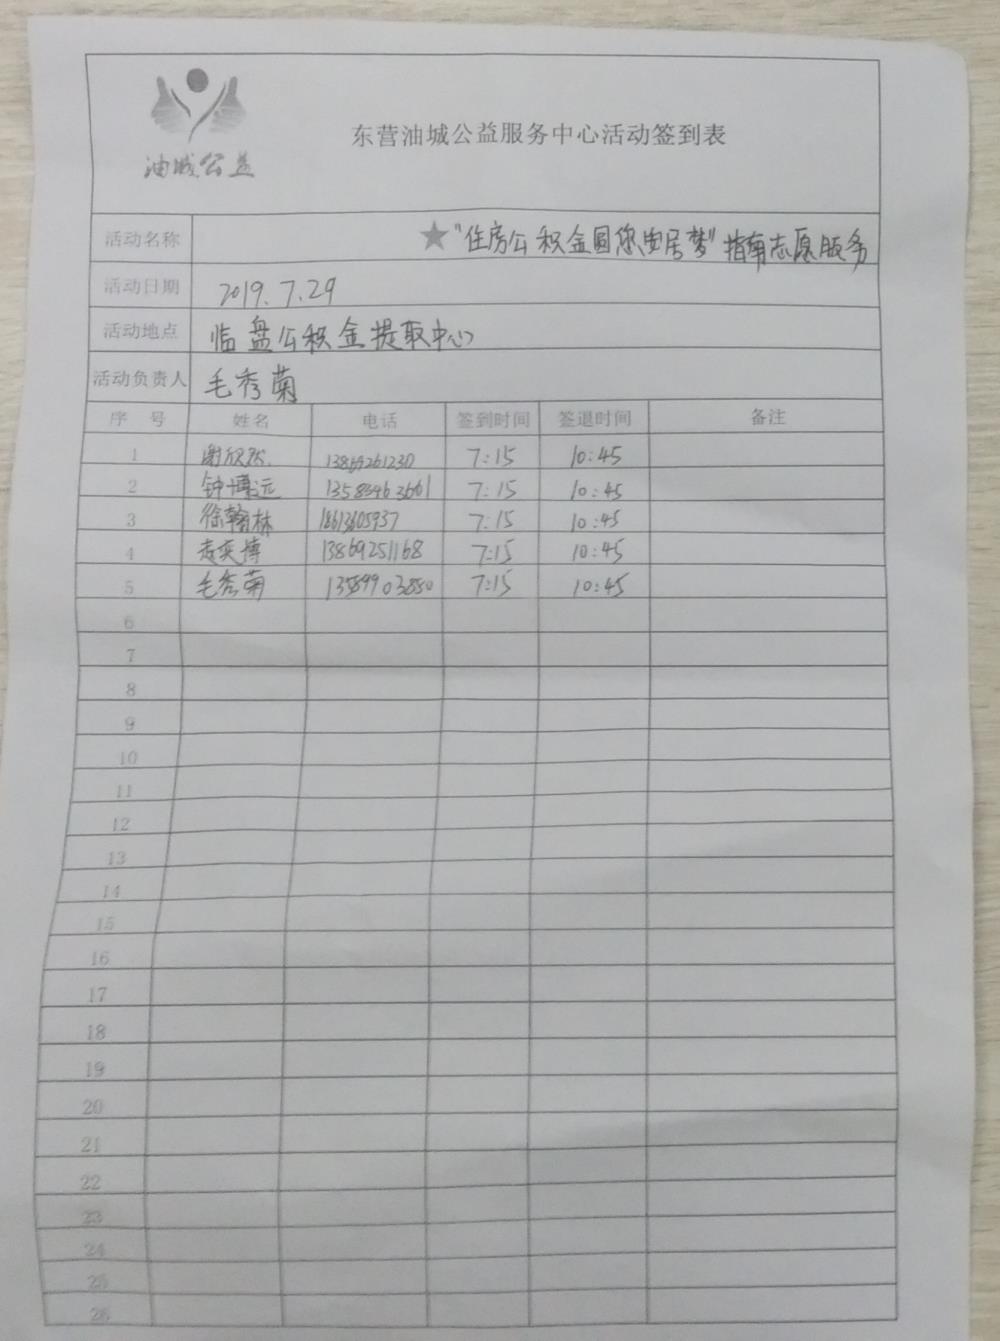 油城公益
东营油城公益服务中心活动签到表
活动名称 ★"住房公积金圆您安居梦"指南志愿服务
活动日期 2019.7.29
活动地点 临盘公积金提取中心
活动负责人 毛秀菊
序 号 姓名 电话 签到时间 签退时间 备注
1 谢欣然 13869261230 7:15 10:45
2 钟博远 13583463661 7:15 10:45
3 徐翰林 18613605937 7:15 10:45
4 袁奕博 13869251168 7:15 10:45
5 毛秀菊 7:15 10:45
6
7
8
9
10
11
12
13
14
15
16
17
18
19
20
21
22
23
24
25
26